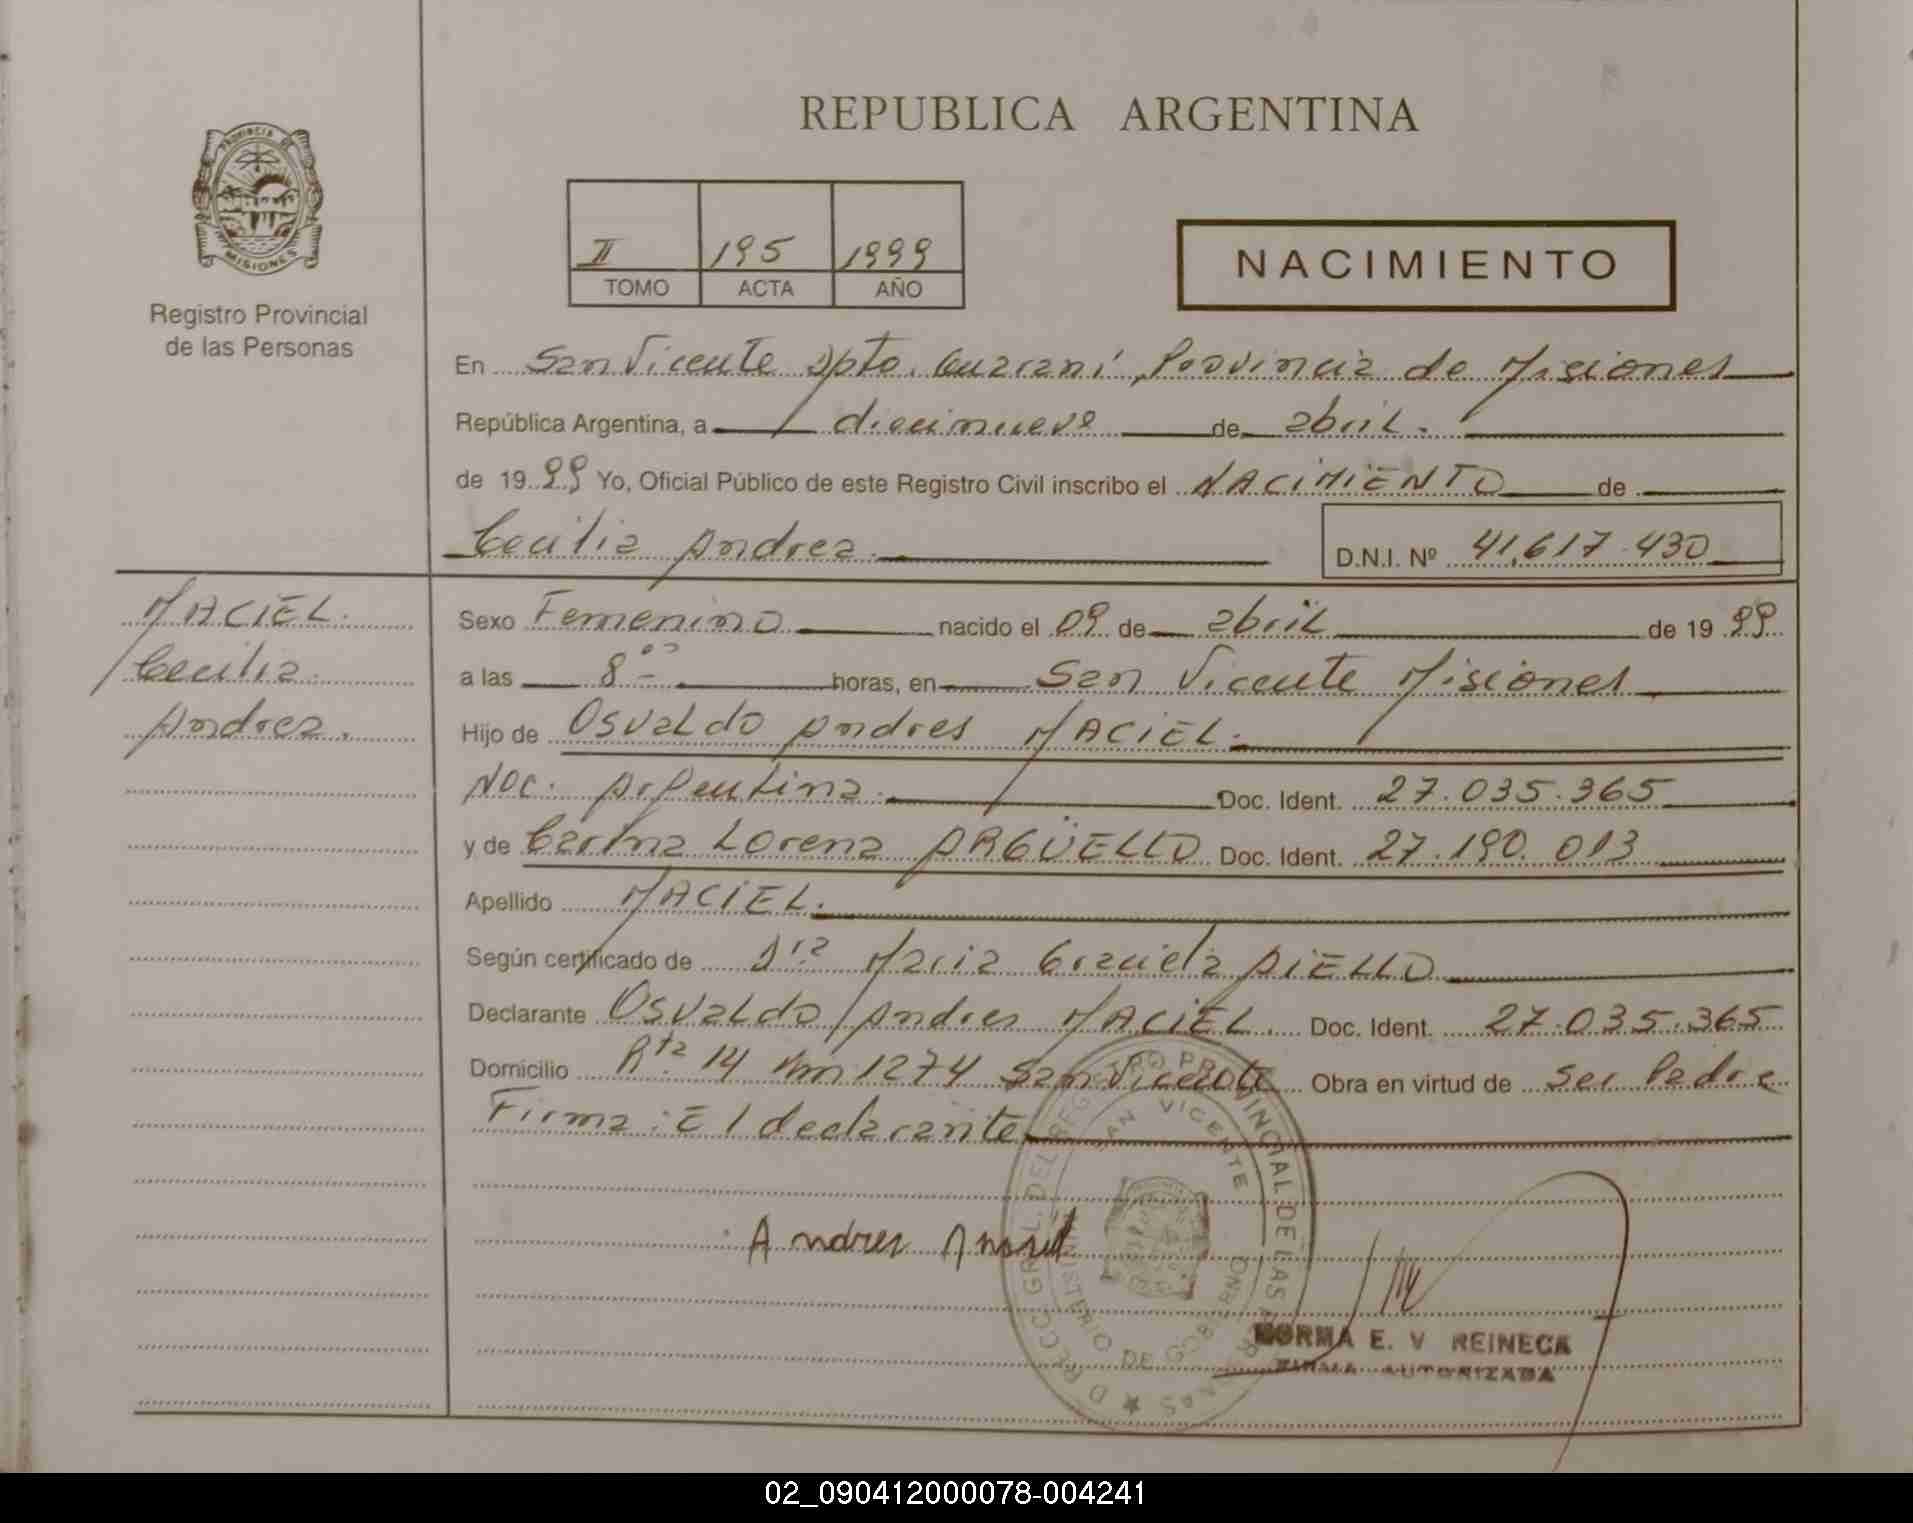 REPUBLICA ARGENTINA
PROVINCIA DE
MISIONES
Registro Provincial
de las Personas
II 195 1999
TOMO ACTA AÑO
NACIMIENTO
En San Vicente Dpto. Guaraní, Provincia de Misiones
República Argentina, a diecinueve de abril.
de 1999 Yo, Oficial Público de este Registro Civil inscribo el NACIMIENTO de
Cecilia Andrea.
D.N.I. Nº 41.617.430
MACIEL.
Cecilia.
Andrea.
Sexo Femenino nacido el 09 de abril de 1999
a las 8 00 horas, en San Vicente Misiones
Hijo de Osvaldo Andres MACIEL.
Nac. Argentina. Doc. Ident. 27.035.365
y de Carina Lorena ARGÜELLO Doc. Ident. 27.190.013
Apellido MACIEL.
Según certificado de Dra Maria Graciela AIELLO
Declarante Osvaldo Andres MACIEL. Doc. Ident. 27.035.365
Domicilio Rta 14 Km 1274 San Vicente Obra en virtud de ser Padre
Firma: El declarante
Andres
SAN VICENTE
MINISTERIO DE GOBIERNO
NORMA E. V REINECK
FIRMA AUTORIZADA
02_090412000078-004241